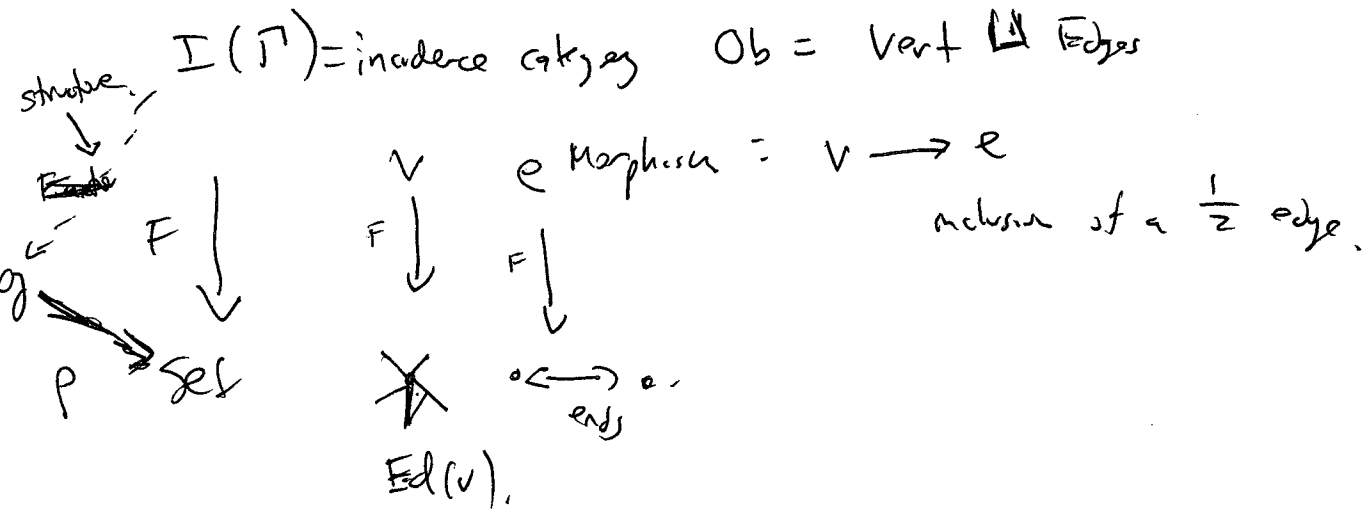 I(Γ) = incidence category   Ob = Vert ⊔ Edges
structure
v   e   Morphism : v → e
F   F   F   inclusion of a 1/2 edge.
g
ρ   Set   ends
Ed(v).